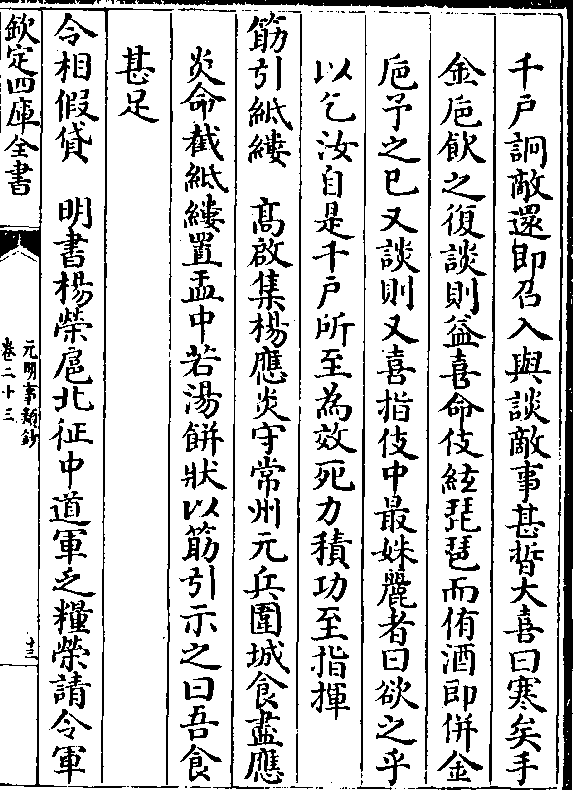 千戸詗敵還即召入與談敵事甚晢大喜曰寒矣手
金巵飲之復談則益喜命伎絃琵琶而侑酒即併金
巵予之已又談則又喜指伎中最姝麗者曰欲之乎
以乞汝自是千戸所至為效死力積功至指揮
筯引紙縷　高啟集楊應炎守常州元兵圍城食盡應
炎命截紙縷置盂中若湯餅狀以筯引示之曰吾食
甚足
令相假貸　明書楊榮扈北征中道軍乏糧榮請令軍
欽定四庫全書
元明事類鈔
卷二十三
十三